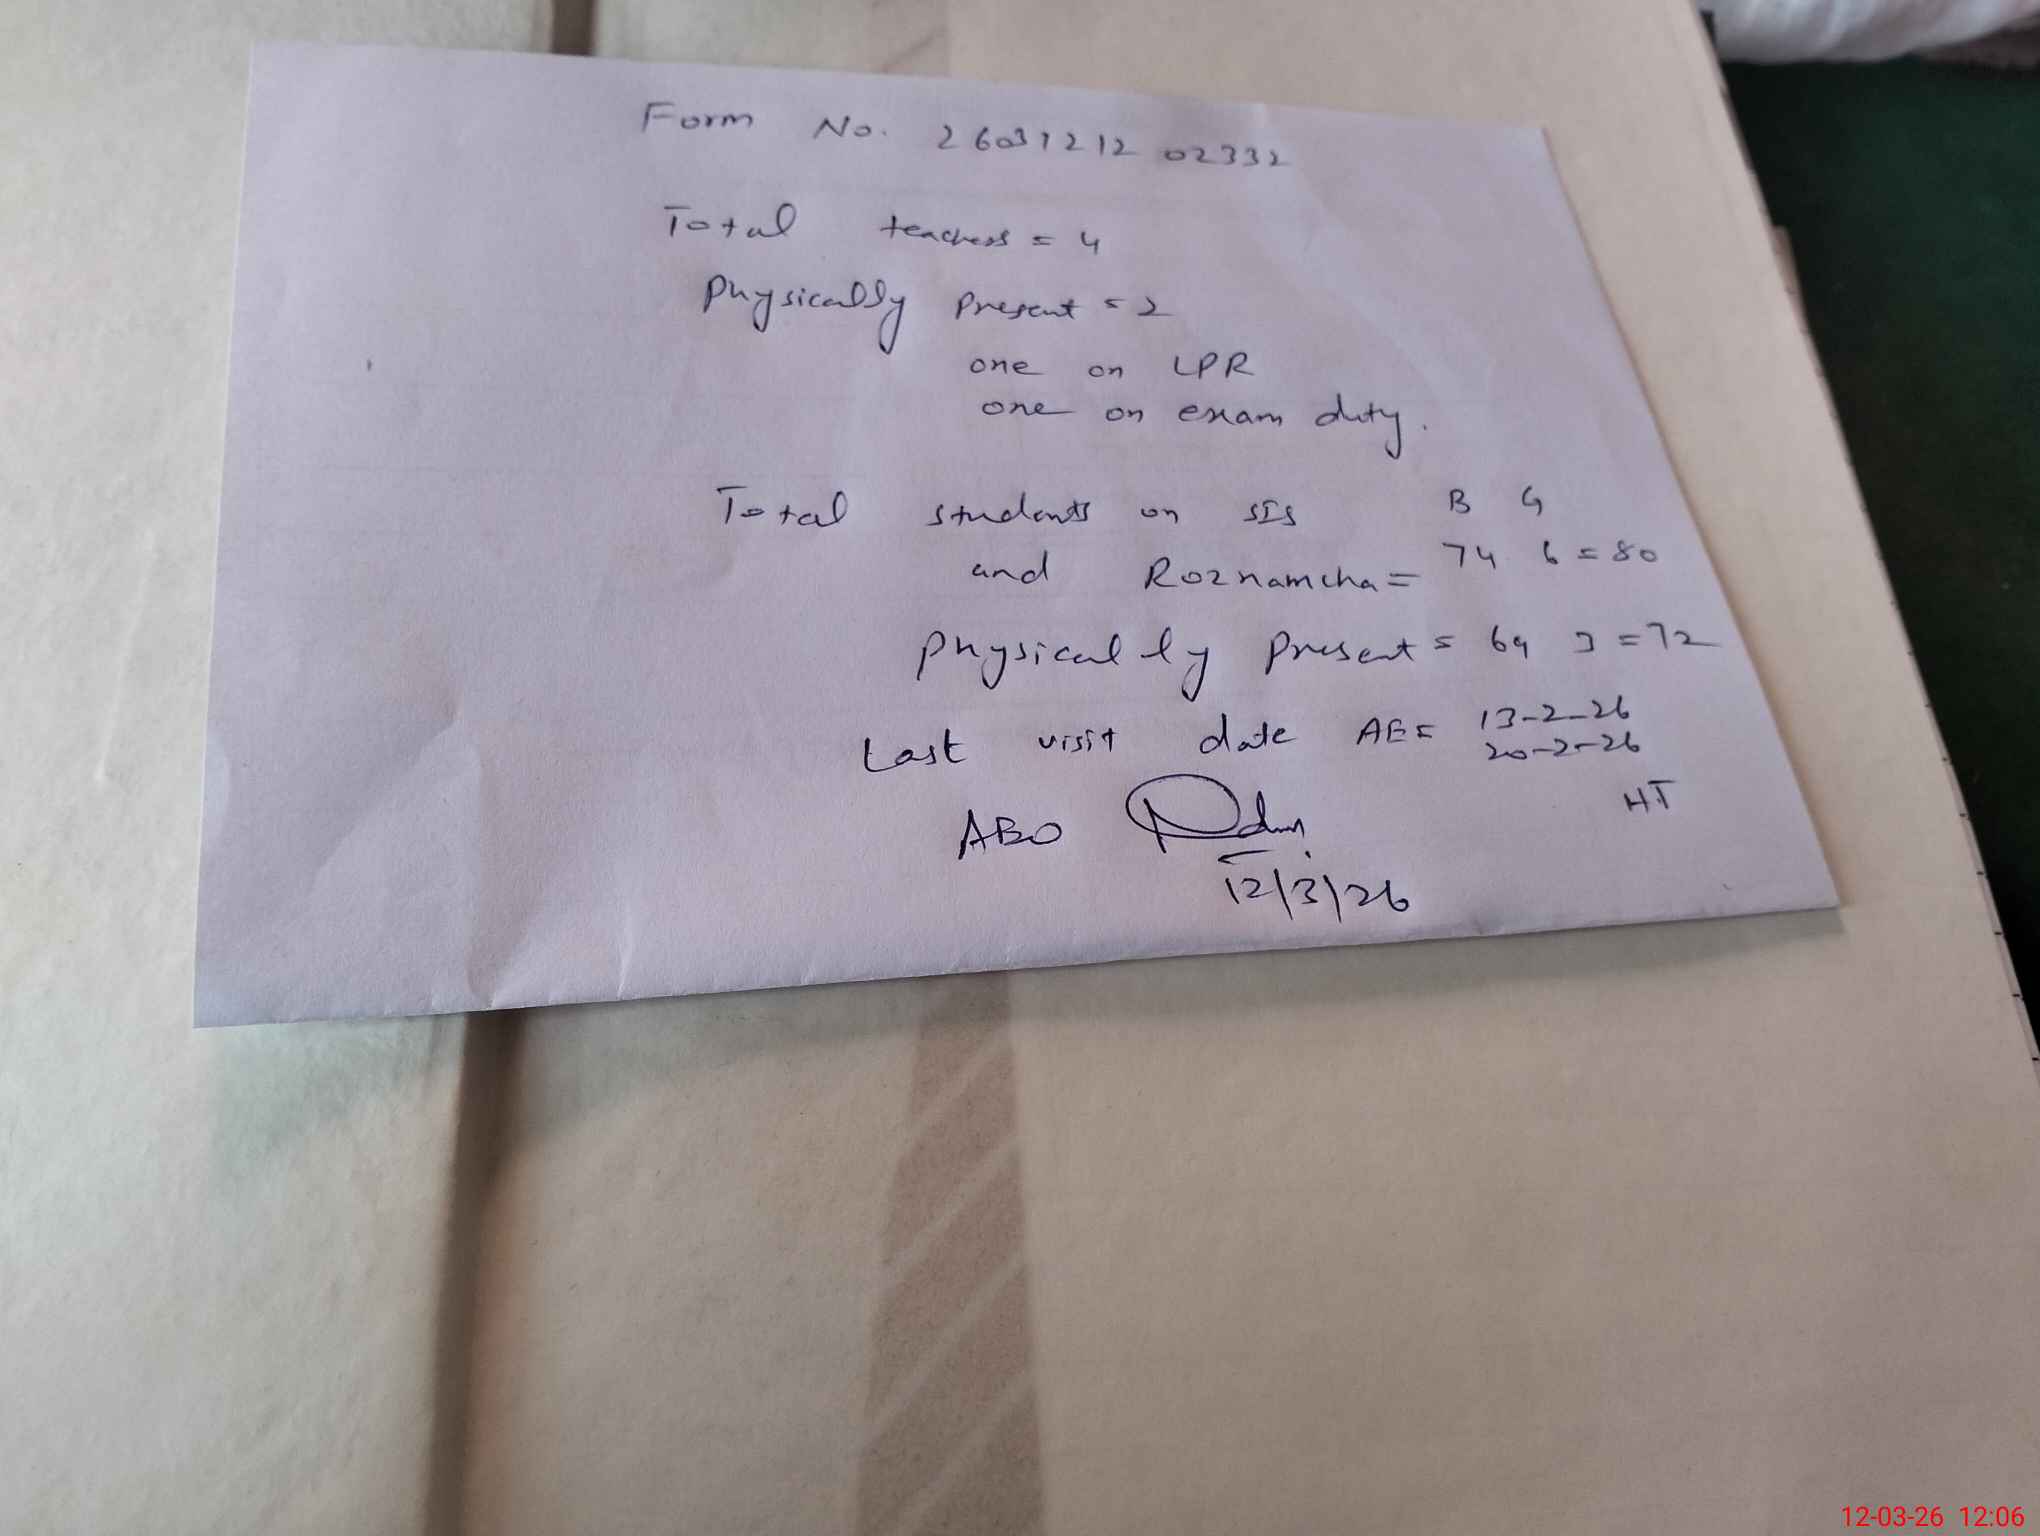 Form No. 26031212 02332
Total teachers = 4
Physically Present = 2
one on LPR
one on exam duty.
Total students on SIS B G
and Roznamcha = 74 6 = 80
Physically Present = 69 3 = 72
Last visit date AE = 13-2-26
20-2-26
HT
ABO
12/3/26
12-03-26 12:06